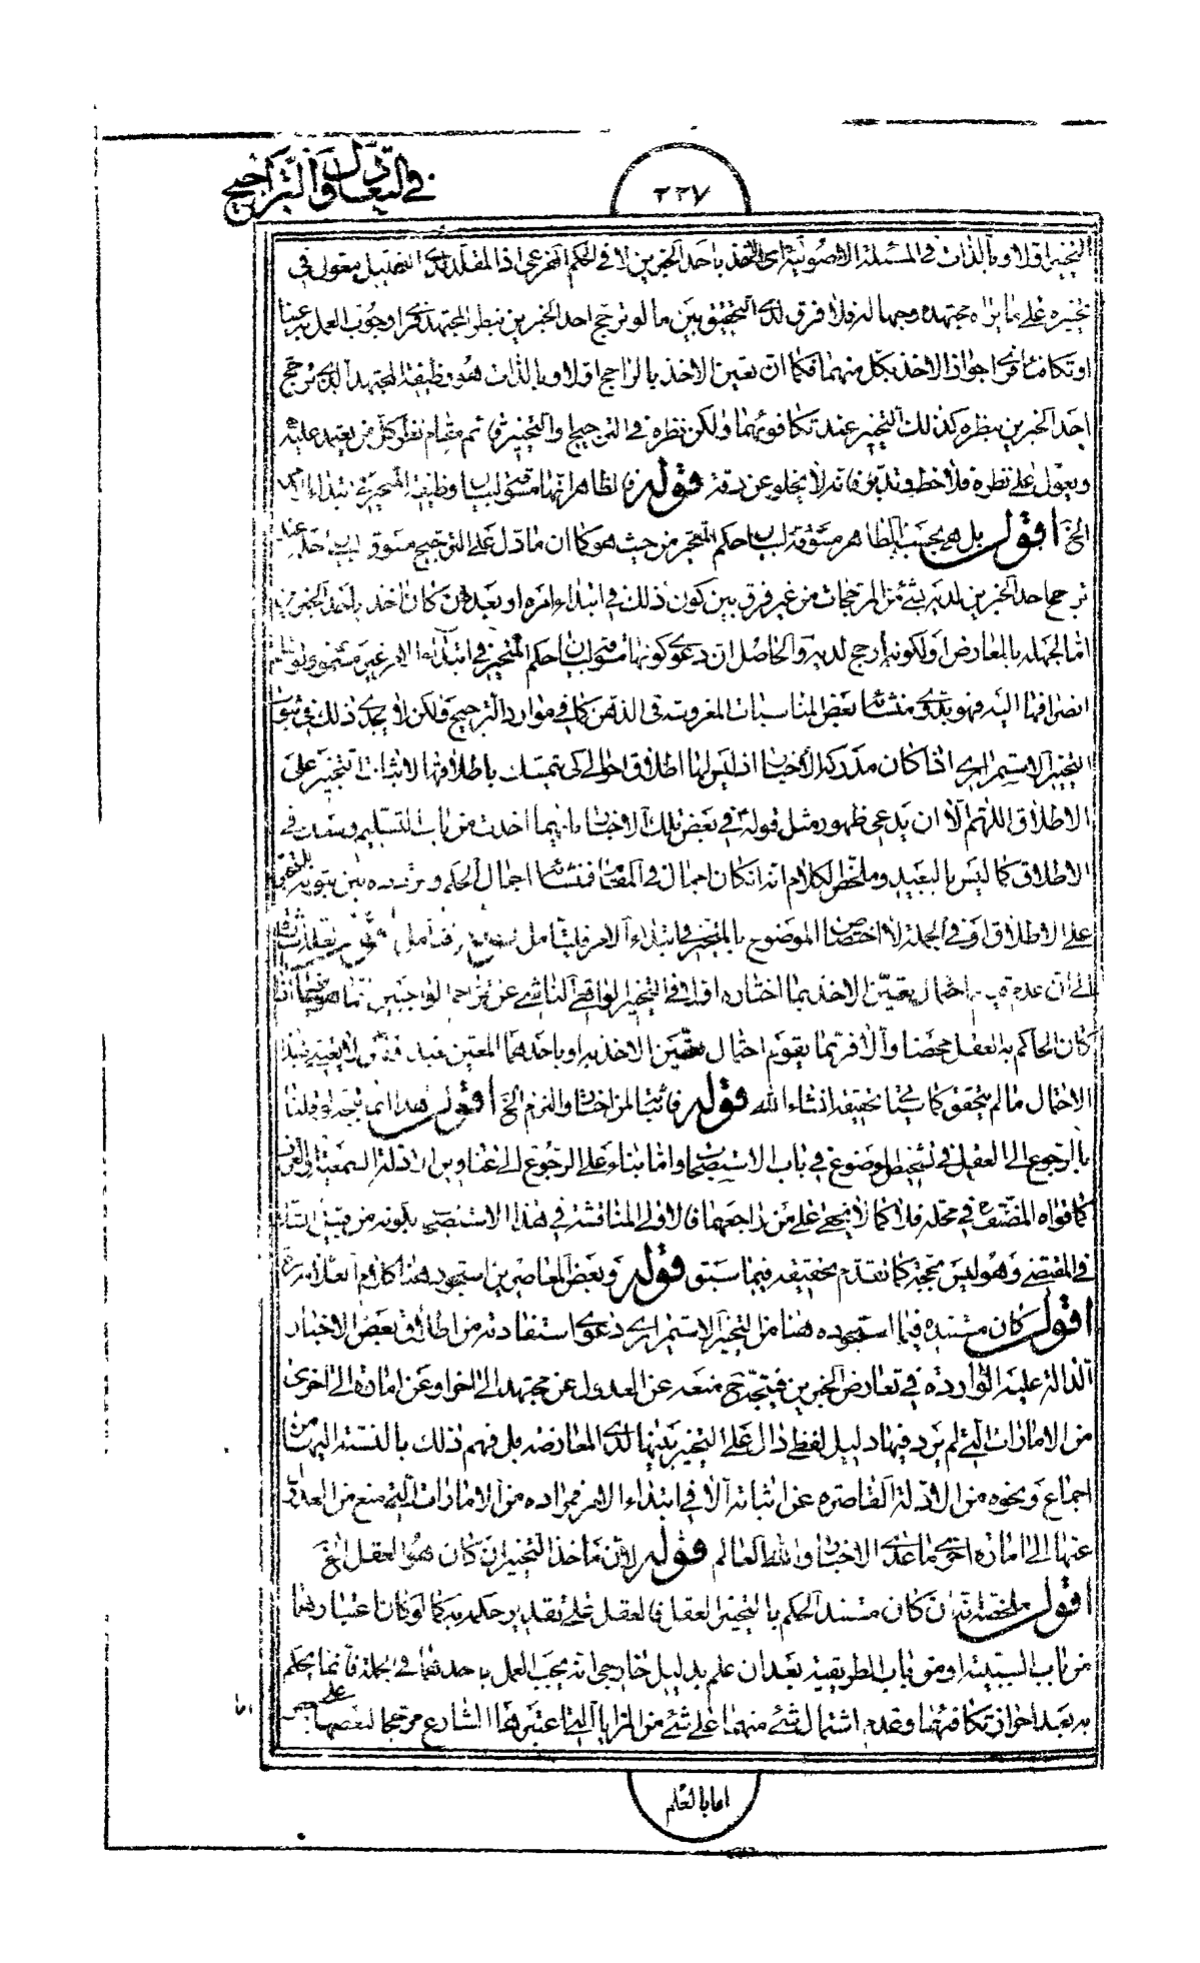 في التعادل والتراجيح
٢٢٧
التخيير اولا وبالذات في المسئلة الاصولية اي الاخذ باحد الخبرين لا في الحكم الفرعي اذ المقلد لدى التحليل معول في
تخييره على ما يراه مجتهده وجها له فلا فرق لدى التحقيق بين ما لو ترجح احد الخبرين بنظر المجتهد فرأى وجوب العمل به عينا
او تكافئا فرأى جواز الاخذ بكل منهما فكما ان تعين الاخذ بالراجح اولا وبالذات هو وظيفة المجتهد الذي ترجح
احد الخبرين بنظره كذلك التخيير عند تكافوئهما ولكن نظره في الترجيح والتخيير قائم مقام نظر كل من يعتمد عليه
ويعول على نظره فلاحظ وتدبر فانه لا يخلو عن دقة قوله فالظاهر انها مسوقة لبيان وظيفة المتحير في ابتداء الامر
الخ اقول بل هي بحسب الظاهر مسوقة لبيان حكم المتحير من حيث هو كما ان ما دل على الترجيح مسوق لبيان حكمه عند
ترجح احد الخبرين لديه بشئ من المرجحات من غير فرق بين كون ذلك في ابتداء امره او بعد ان كان اخذ باحد الخبرين
اما لجهله بالمعارض او لكونه ارجح لديه والحاصل ان دعوى كونها مسوقة لبيان حكم المتحير في ابتداء الامر غير مسموعة
انصرافها اليه فهو بدوي منشئه بعض المناسبات المغروسة في الذهن كما في موارد الترجيح ولكن لا يجدي ذلك في ثبوت
التخيير الاستمراري اذا كان مدركه الاخبار اذ ليس لها اطلاق احوالي كي يتمسك باطلاقها لاثبات التخيير على
الاطلاق اللهم الا ان يدعى ظهور مثل قوله في بعض تلك الاخبار بايهما اخذت من باب التسليم وسعك في
الاطلاق كما ليس بالبعيد وملخص الكلام انه ان كان اجمال في المقام فمنشئه اجمال الحكم وتردده بين ثبوته للمتحير
على الاطلاق او في الجملة لا اختصاص الموضوع بالمتحير في ابتداء الامر فليتأمل قوله فتأمل
الى ان عدم احتمال تعين الاخذ بما اختاره اولا في التخيير الواقعي الناشئ عن تزاحم الواجبين انما هو فيما اذا
كان الحاكم به العقل محضا والا فربما يقوم احتمال تعين الاخذ به او باحدهما المعين عند
الاحتمال ما لم يتحقق كما يأتي تحقيقه انشاء الله قوله فاثبات المن اختار والتزم الخ اقول هذا انما يتجه لو قلنا
بالرجوع الى العقل في تشخيص الموضوع في باب الاستصحاب واما بناء على الرجوع الى عناوين الادلة السمعية او العرف
كما قواه المصنف في محله فلا كما لا يخفى على من راجعهما فالاولى المناقشة في هذا الاستصحاب بكونه من قبيل الشك
في المقتضي وهو ليس بحجة كما تقدم تحقيقه فيما سبق قوله وبعض المعاصرين استجود هنا كلام العلامة
اقول كان مستنده فيما استجوده هنا من التخيير الاستمراري دعوى استفادته من اطلاق بعض الاخبار
الدالة عليه الواردة في تعارض الخبرين فيتجه ح منعه عن العدول عن مجتهد الى اخر او عن امارة الى اخرى
من الامارات التي لم يرد فيها دليل لفظي دال على التخيير بينها لدى المعارضة بل فهم ذلك بالنسبة اليها من
اجماع ونحوه من الادلة القاصرة عن اثباته الا في ابتداء الامر فمراده من الامارات التي منع من العدول
عنها الى امارة اخرى ما عدى الاخبار والله العالم قوله لان مأخذ التخيير ان كان هو العقل الخ
اقول ملخصه انه ان كان مستند الحكم بالتخيير العقل فالعقل على تقدير حكمه به كما لو كان اعتبارهما
من باب السببية او من باب الطريقية بعد ان علم بدليل خارجي انه يجب العمل باحدهما في الجملة فانما يحكم
به بعد احراز تكافئهما وعدم اشتمال شئ منهما على شئ من المزايا التي اعتبرها الشارع مرجحا لبعضها على بعض
اما
اما بالعلم